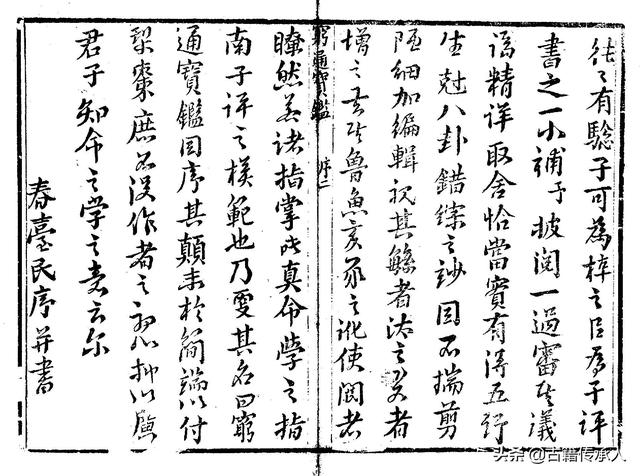 往〻有驗子可為梓之且為子評
書之一小補予披閱一過審其議
論精詳取舍恰當實有得五行
生尅八卦錯綜之妙因不揣剪
陋細加編輯視其繇者汰之畧者
增之去其魯魚亥豕之訛使閱者
窮通寶鑑 序二
瞭然若諸指掌此真命學之指
南子評之模範也乃更其名曰窮
通寶鑑因序其顛末於簡端以付
梨棗庶不没作者之思抑以廣
君子知命之学之意云尔
春臺氏序并書
头条@古籍传承人